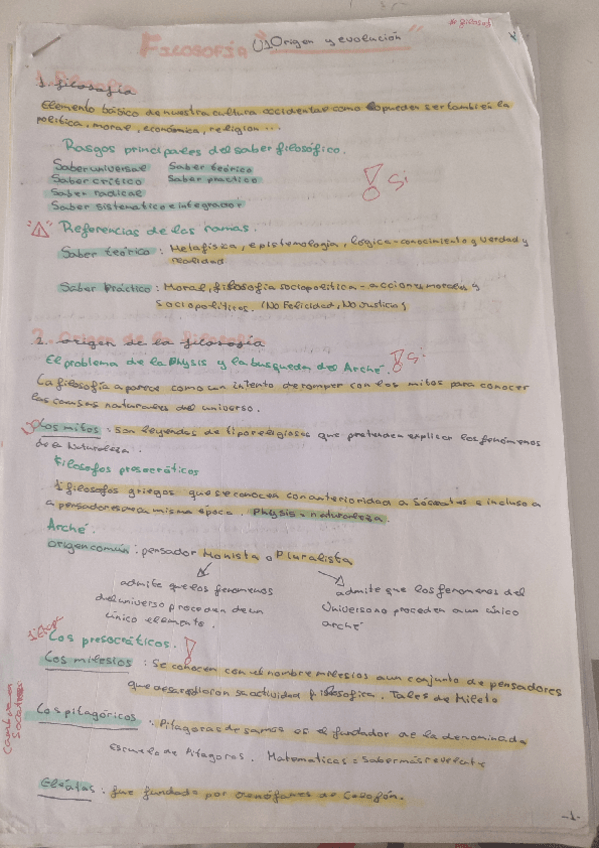 de filosof
FILOSOFÍA U1 "Origen y evolución"
1. filosofía
Elemento básico de nuestra cultura occidental como lo pueden ser también la
política, moral, económica, religion...
Rasgos principales del saber filosófico.
Saber universal Saber teórico
Saber crítico Saber práctico
Saber radical
Saber sistematico e integrador
Si
Referencias de las ramas.
Saber teórico : Metafísica, epistemología, lógica - conocimiento y verdad y
realidad
Saber Práctico : Moral, filosofía sociopolítica - acciones morales y
sociopolíticos. (No Felicidad, No Justicia)
2. origen de la filosofía
El problema de la Physis y la busqueda del Arché.
Si
La filosofía aparece como un intento de romper con los mitos para conocer
las causas naturales del universo.
Los mitos : son leyendas de tipo religiosas que pretenden explicar los fenómenos
de la Naturaleza.
Filosofos presocráticos
filosofos griegos que se conocen con anterioridad a Sócrates e incluso a
a pensadores misma época. Physis = naturaleza.
Arché.
origen común : pensador Monista o Pluralista
admite que los fenomenos
del universo proceden de un
único elemento.
admite que los fenomenos del
Universo no proceden a un único
arché
Los presocráticos.
Los milesios : Se conocen con el nombre milesios a un conjunto de pensadores
que desarrollaron su actividad filosofica. Tales de Mileto
Los pitagóricos : Pitagoras de samos es el fundador de la denominada
escuela de Pitagoras. Matematicas = Saber más relevante
Eléatas : fue fundado por Genófanes de Colofón.
-1-